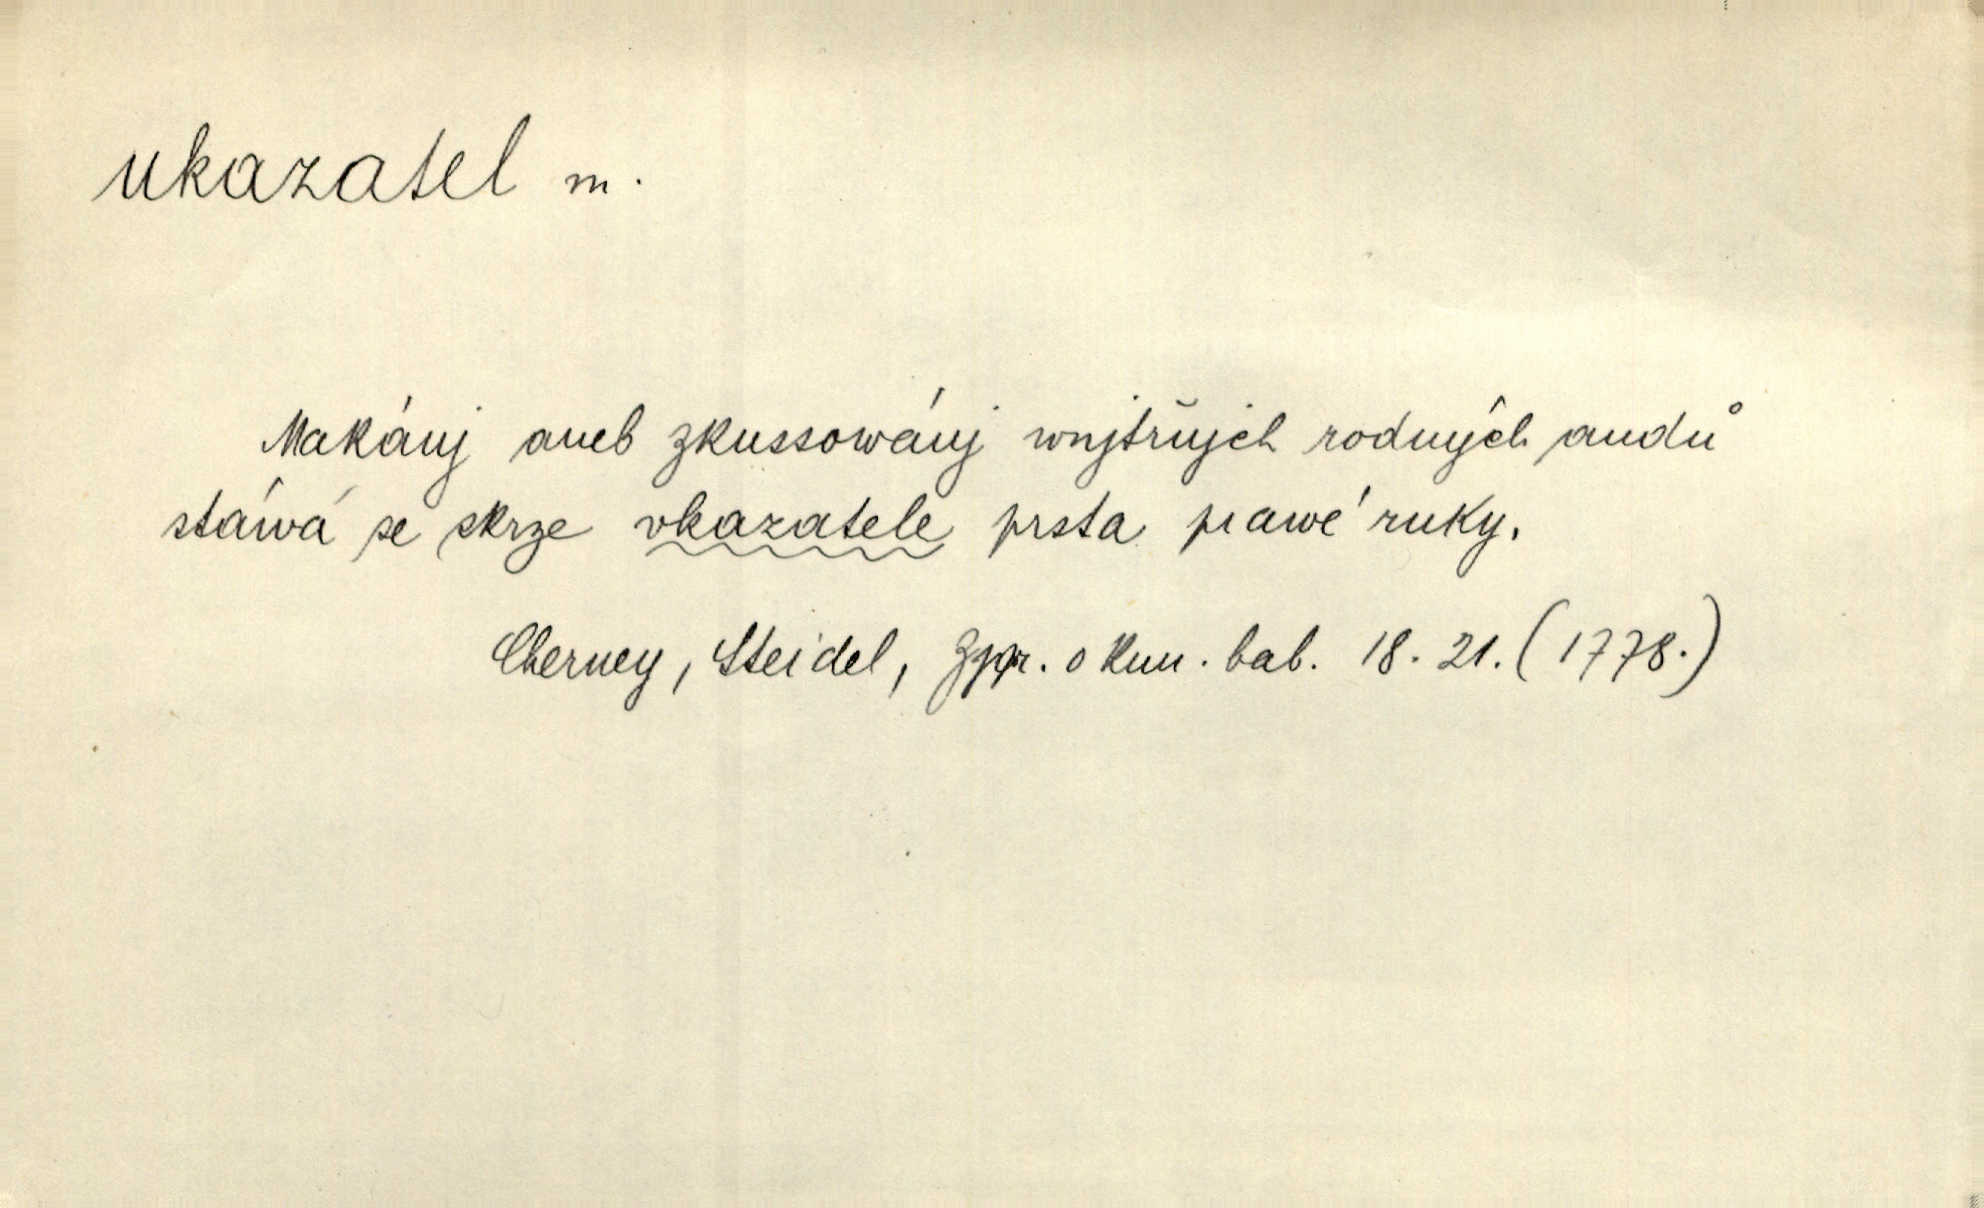 ukazatel m.
Makánj aneb zkussowánj wnjtřnjch rodných audů
stáwá se skrze vkazatele prsta prawé ruky.
Cherney, Steidel, Zpr. o kun. bab. 18. 21. (1778.)